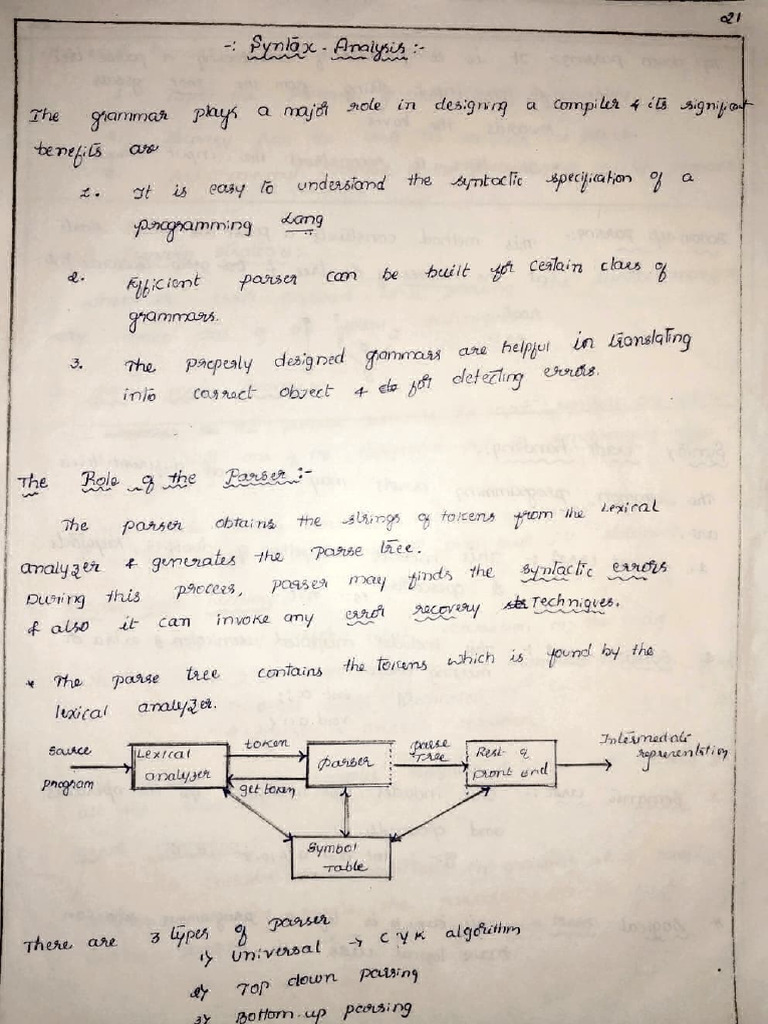 21
-: Syntax - Analysis :-
The grammar plays a major role in designing a compiler & its significant
benefits are
1. It is easy to understand the syntactic specification of a
programming Lang
2. Efficient parser can be built for certain class of
grammars.
3. The properly designed grammars are helpful in translating
into correct object & for detecting errors.
The Role of the Parser :-
The parser obtains the strings of tokens from the Lexical
analyzer & generates the parse tree.
During this process, parser may finds the syntactic errors
& also it can invoke any error recovery Techniques.
* The parse tree contains the tokens which is found by the
lexical analyzer.
source
program
Lexical
analyzer
token
get token
parser
parse
Tree
Rest of
front end
Intermediate
representation
Symbol
Table
There are 3 types of parser
1) universal → CYK algorithm
2) Top down parsing
3) Bottom-up parsing